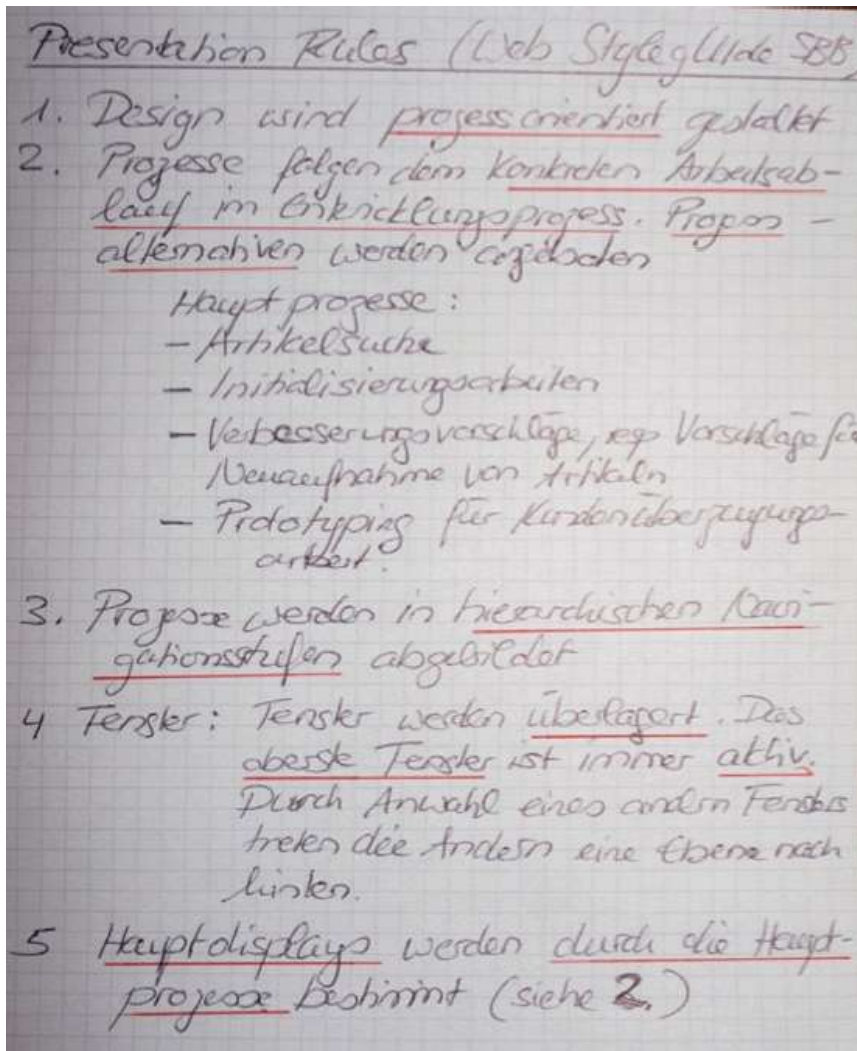 Presentation Rules (Web Styleguide SBB)
1. Design wird prozessorientiert gestaltet
2. Prozesse folgen dem konkreten Arbeitsab-
lauf im Entwicklungsprozess.
alternativen werden angeboten
Hauptprozesse:
- Artikelsuche
- Initialisierungsarbeiten
- Verbesserungsvorschläge, resp Vorschläge für
Neuaufnahme von Artikeln
- Prototyping für Kundenüberzeugungs-
arbeit.
3. Prozesse werden in hierarchischen Navi-
gationsstufen abgebildet
4 Fenster: Fenster werden überlagert. Das
oberste Fenster ist immer aktiv.
Durch Anwahl eines andern Fensters
treten die Andern eine Ebene nach
hinten.
5 Hauptdisplays werden durch die Haupt-
prozesse bestimmt (siehe 2.)